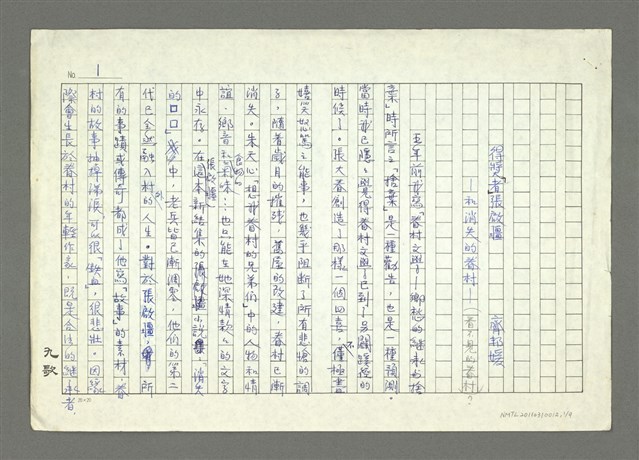 No. 1
得獎者張啟疆 齊邦媛
—和消失的眷村—(看不見的眷村?
五年前我寫「眷村文學」—鄉愁的繼承與捨
棄」時所言之「捨棄」是一種勸告,也是一種預測。
當時我已隱隱覺得眷村文學已到了另闢蹊徑的
時候了。張大春創造了那樣一個四喜,不僅極盡
嬉笑怒罵之能事,也幾乎阻斷了所有悲愴的調
子,隨著歲月的摧殘,舊屋的改建,眷村已漸
消失。朱天心「想我眷村的兄弟們」中的人物和情
誼、鄉音和氣味…也只能在她深情款款的文字
中永存。在這本新結集的張啟疆小說集,消失
的□□中,老兵皆已漸凋零,他們的第二
代已全然融入村外的人生。對於張啟疆,所
有的事蹟或傳奇都成了他寫「故事」的素材,眷
村的故事
可以很「鐵血」,很悲壯。因緣
際會生長於眷村的年輕作家,既是合法的繼承者,
九歌
NMTL20110310012,1/4